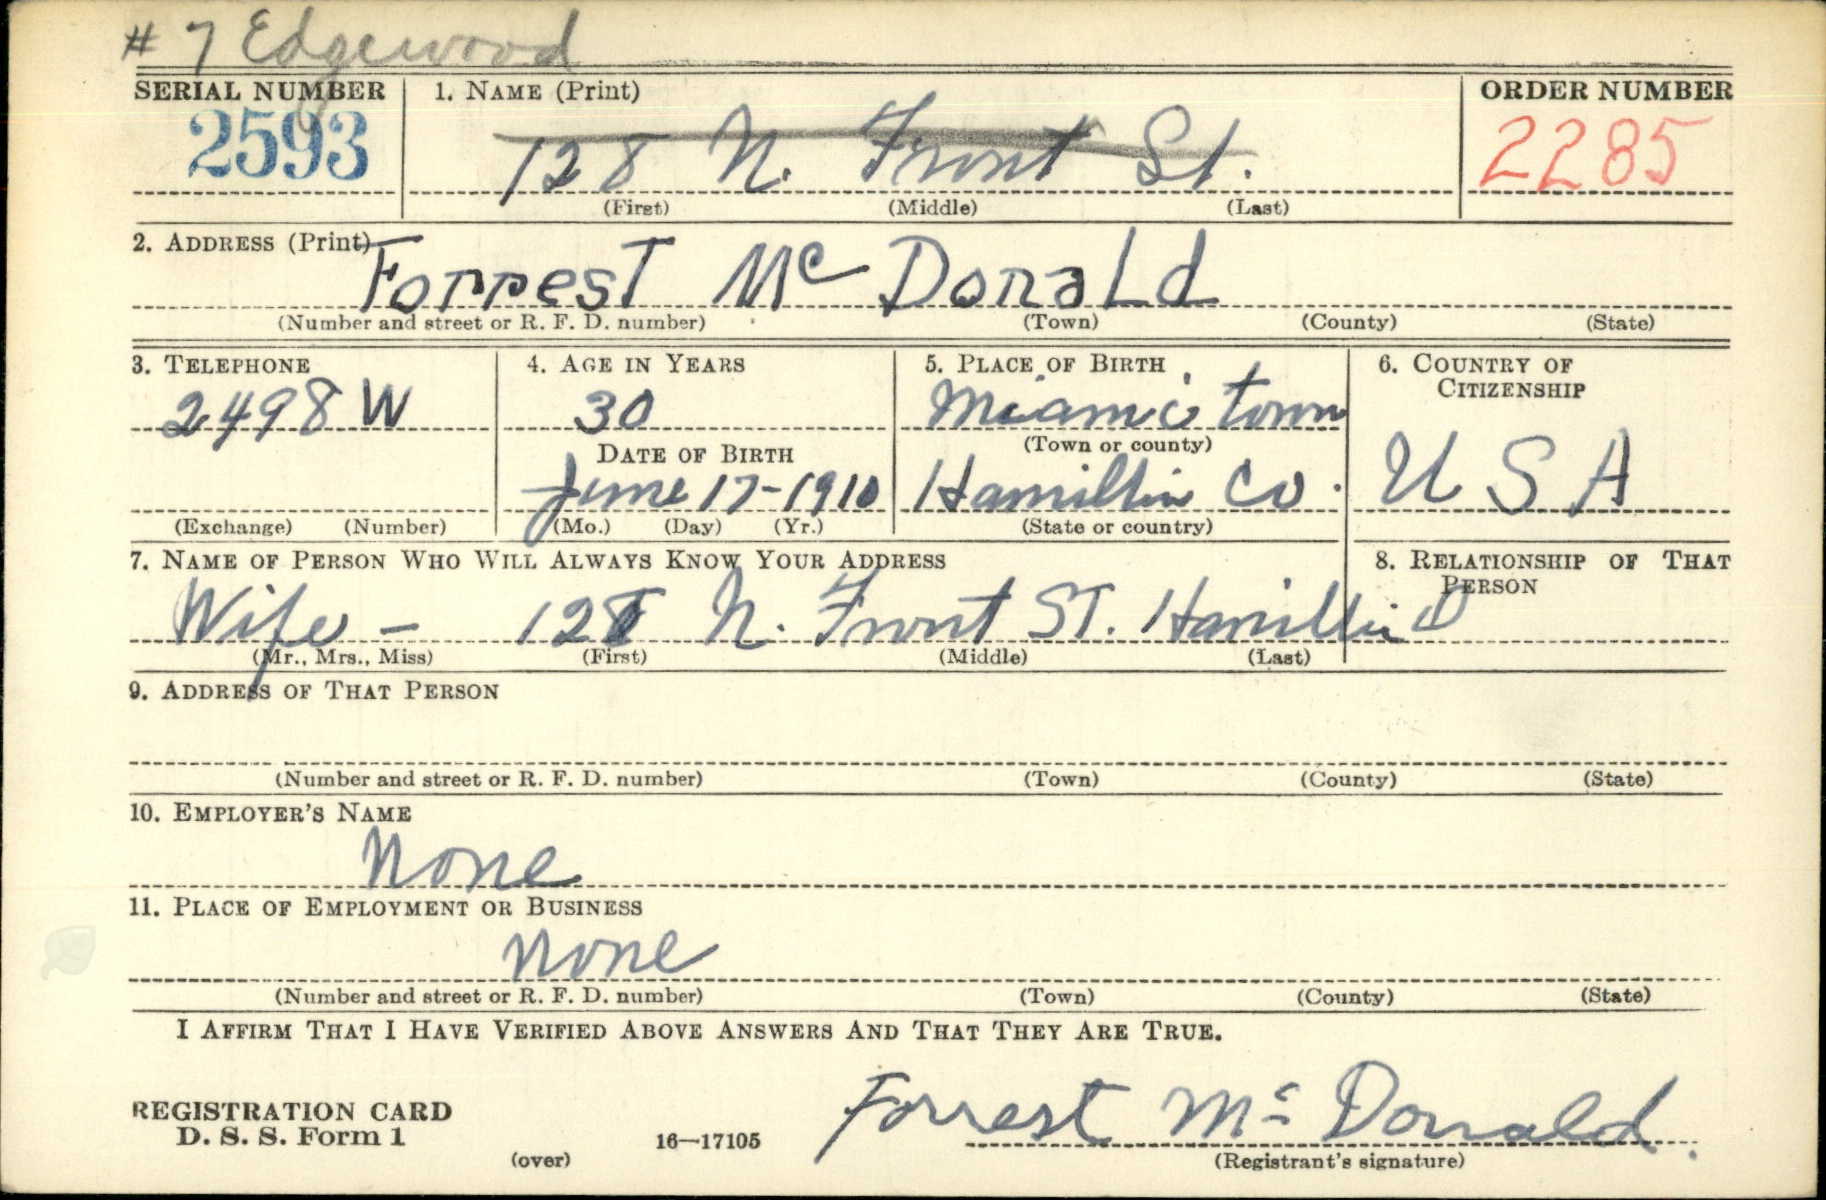 # 7 Edgewood
SERIAL NUMBER 1. NAME (Print) ORDER NUMBER
2593 128 N. Front St. 2285
(First) (Middle) (Last)
2. ADDRESS (Print)
Forrest Mc Donald
(Number and street or R. F. D. number) (Town) (County) (State)
3. TELEPHONE 4. AGE IN YEARS 5. PLACE OF BIRTH 6. COUNTRY OF
CITIZENSHIP
2498 W 30 Miami town
(Town or county)
DATE OF BIRTH
June 17-1910 Hamilton Co. U S A
(Exchange) (Number) (Mo.) (Day) (Yr.) (State or country)
7. NAME OF PERSON WHO WILL ALWAYS KNOW YOUR ADDRESS 8. RELATIONSHIP OF THAT
PERSON
Wife - 128 N. Front ST. Hamilton O
(Mr., Mrs., Miss) (First) (Middle) (Last)
9. ADDRESS OF THAT PERSON
(Number and street or R. F. D. number) (Town) (County) (State)
10. EMPLOYER'S NAME
None
11. PLACE OF EMPLOYMENT OR BUSINESS
None
(Number and street or R. F. D. number) (Town) (County) (State)
I AFFIRM THAT I HAVE VERIFIED ABOVE ANSWERS AND THAT THEY ARE TRUE.
REGISTRATION CARD
D. S. S. Form 1 16—17105 Forrest Mc Donald.
(over) (Registrant's signature)